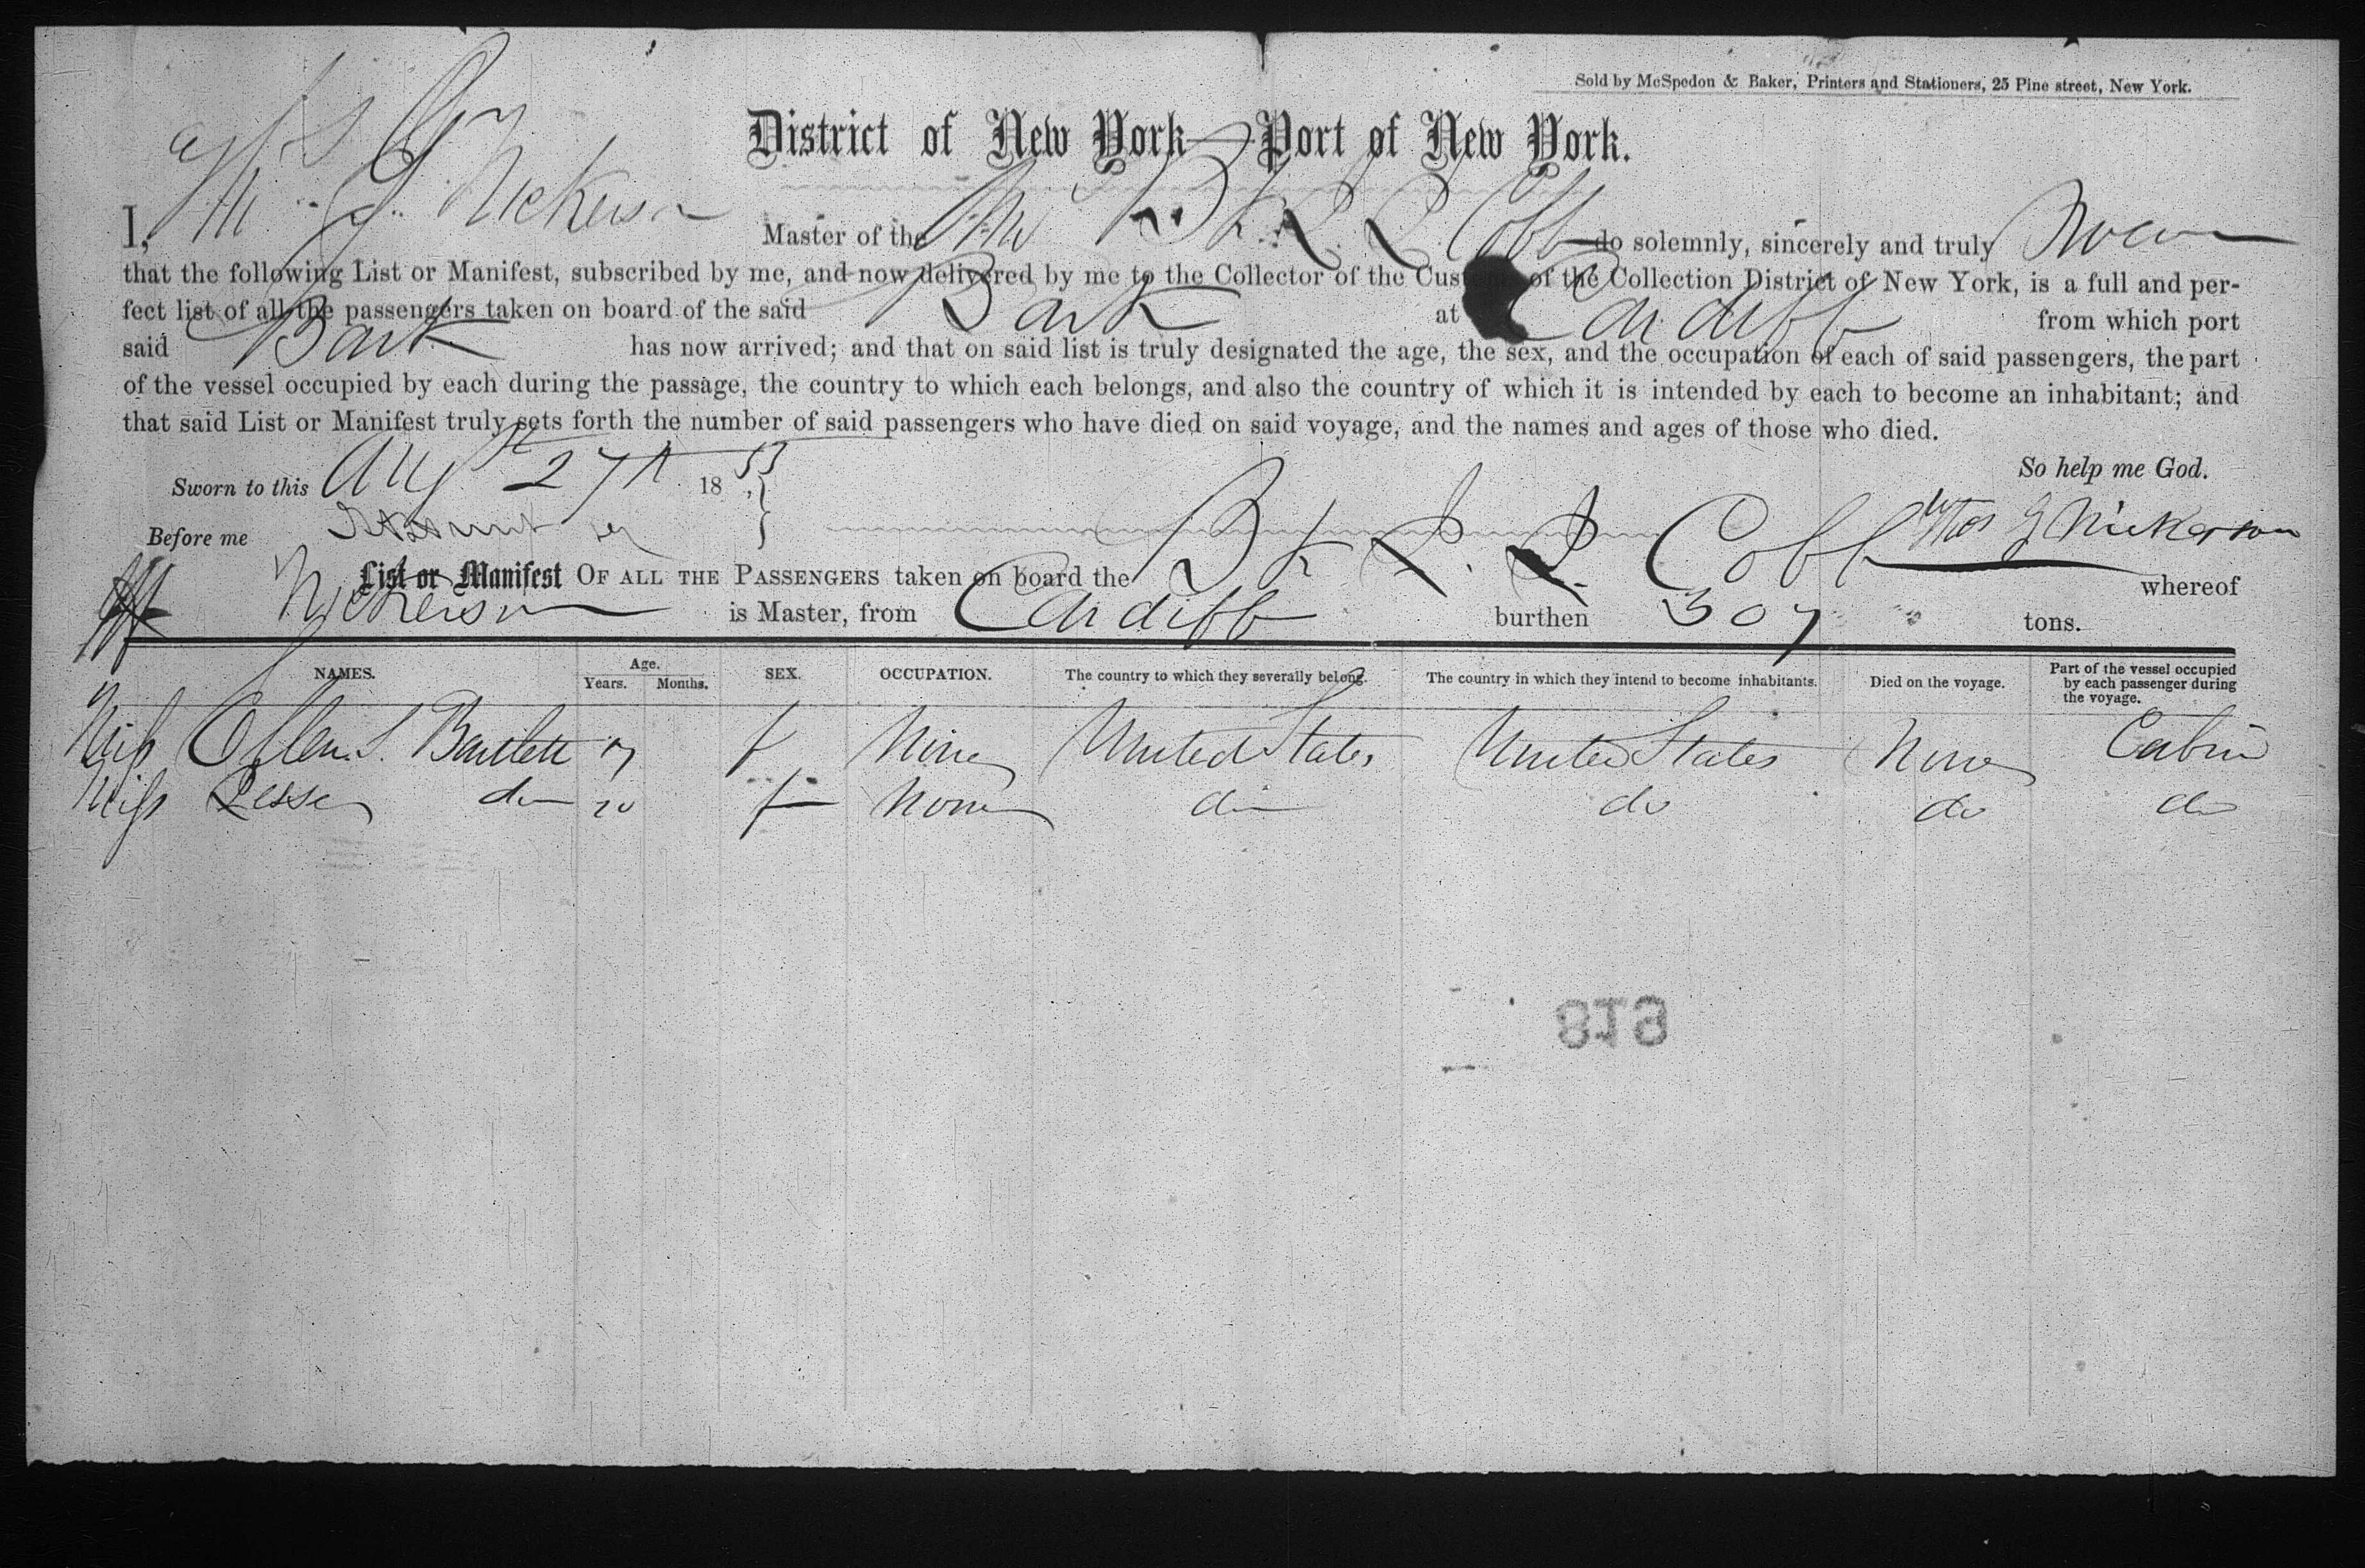 Sold by McSpedon & Baker, Printers and Stationers, 25 Pine street, New York.
District of New York—Port of New York.
I, Nickerson Master of the Cobb do solemnly, sincerely and truly
that the following List or Manifest, subscribed by me, and now delivered by me to the Collector of the Customs of the Collection District of New York, is a full and per-
fect list of all the passengers taken on board of the said Bark at Cardiff from which port
said Bark has now arrived; and that on said list is truly designated the age, the sex, and the occupation of each of said passengers, the part
of the vessel occupied by each during the passage, the country to which each belongs, and also the country of which it is intended by each to become an inhabitant; and
that said List or Manifest truly sets forth the number of said passengers who have died on said voyage, and the names and ages of those who died.
So help me God.
Sworn to this Augt 27th 18
Thos G Nickerson
Before me
List or Manifest OF ALL THE PASSENGERS taken on board the Bk Cobb whereof
Nickerson is Master, from Cardiff burthen 307 tons.
NAMES. Age. Years. Months. SEX. OCCUPATION. The country to which they severally belong. The country in which they intend to become inhabitants. Died on the voyage. Part of the vessel occupied by each passenger during the voyage.
Miss Ellen S. Bartlett f None United States United States None Cabin
Miss do 20 f None do do do do
819